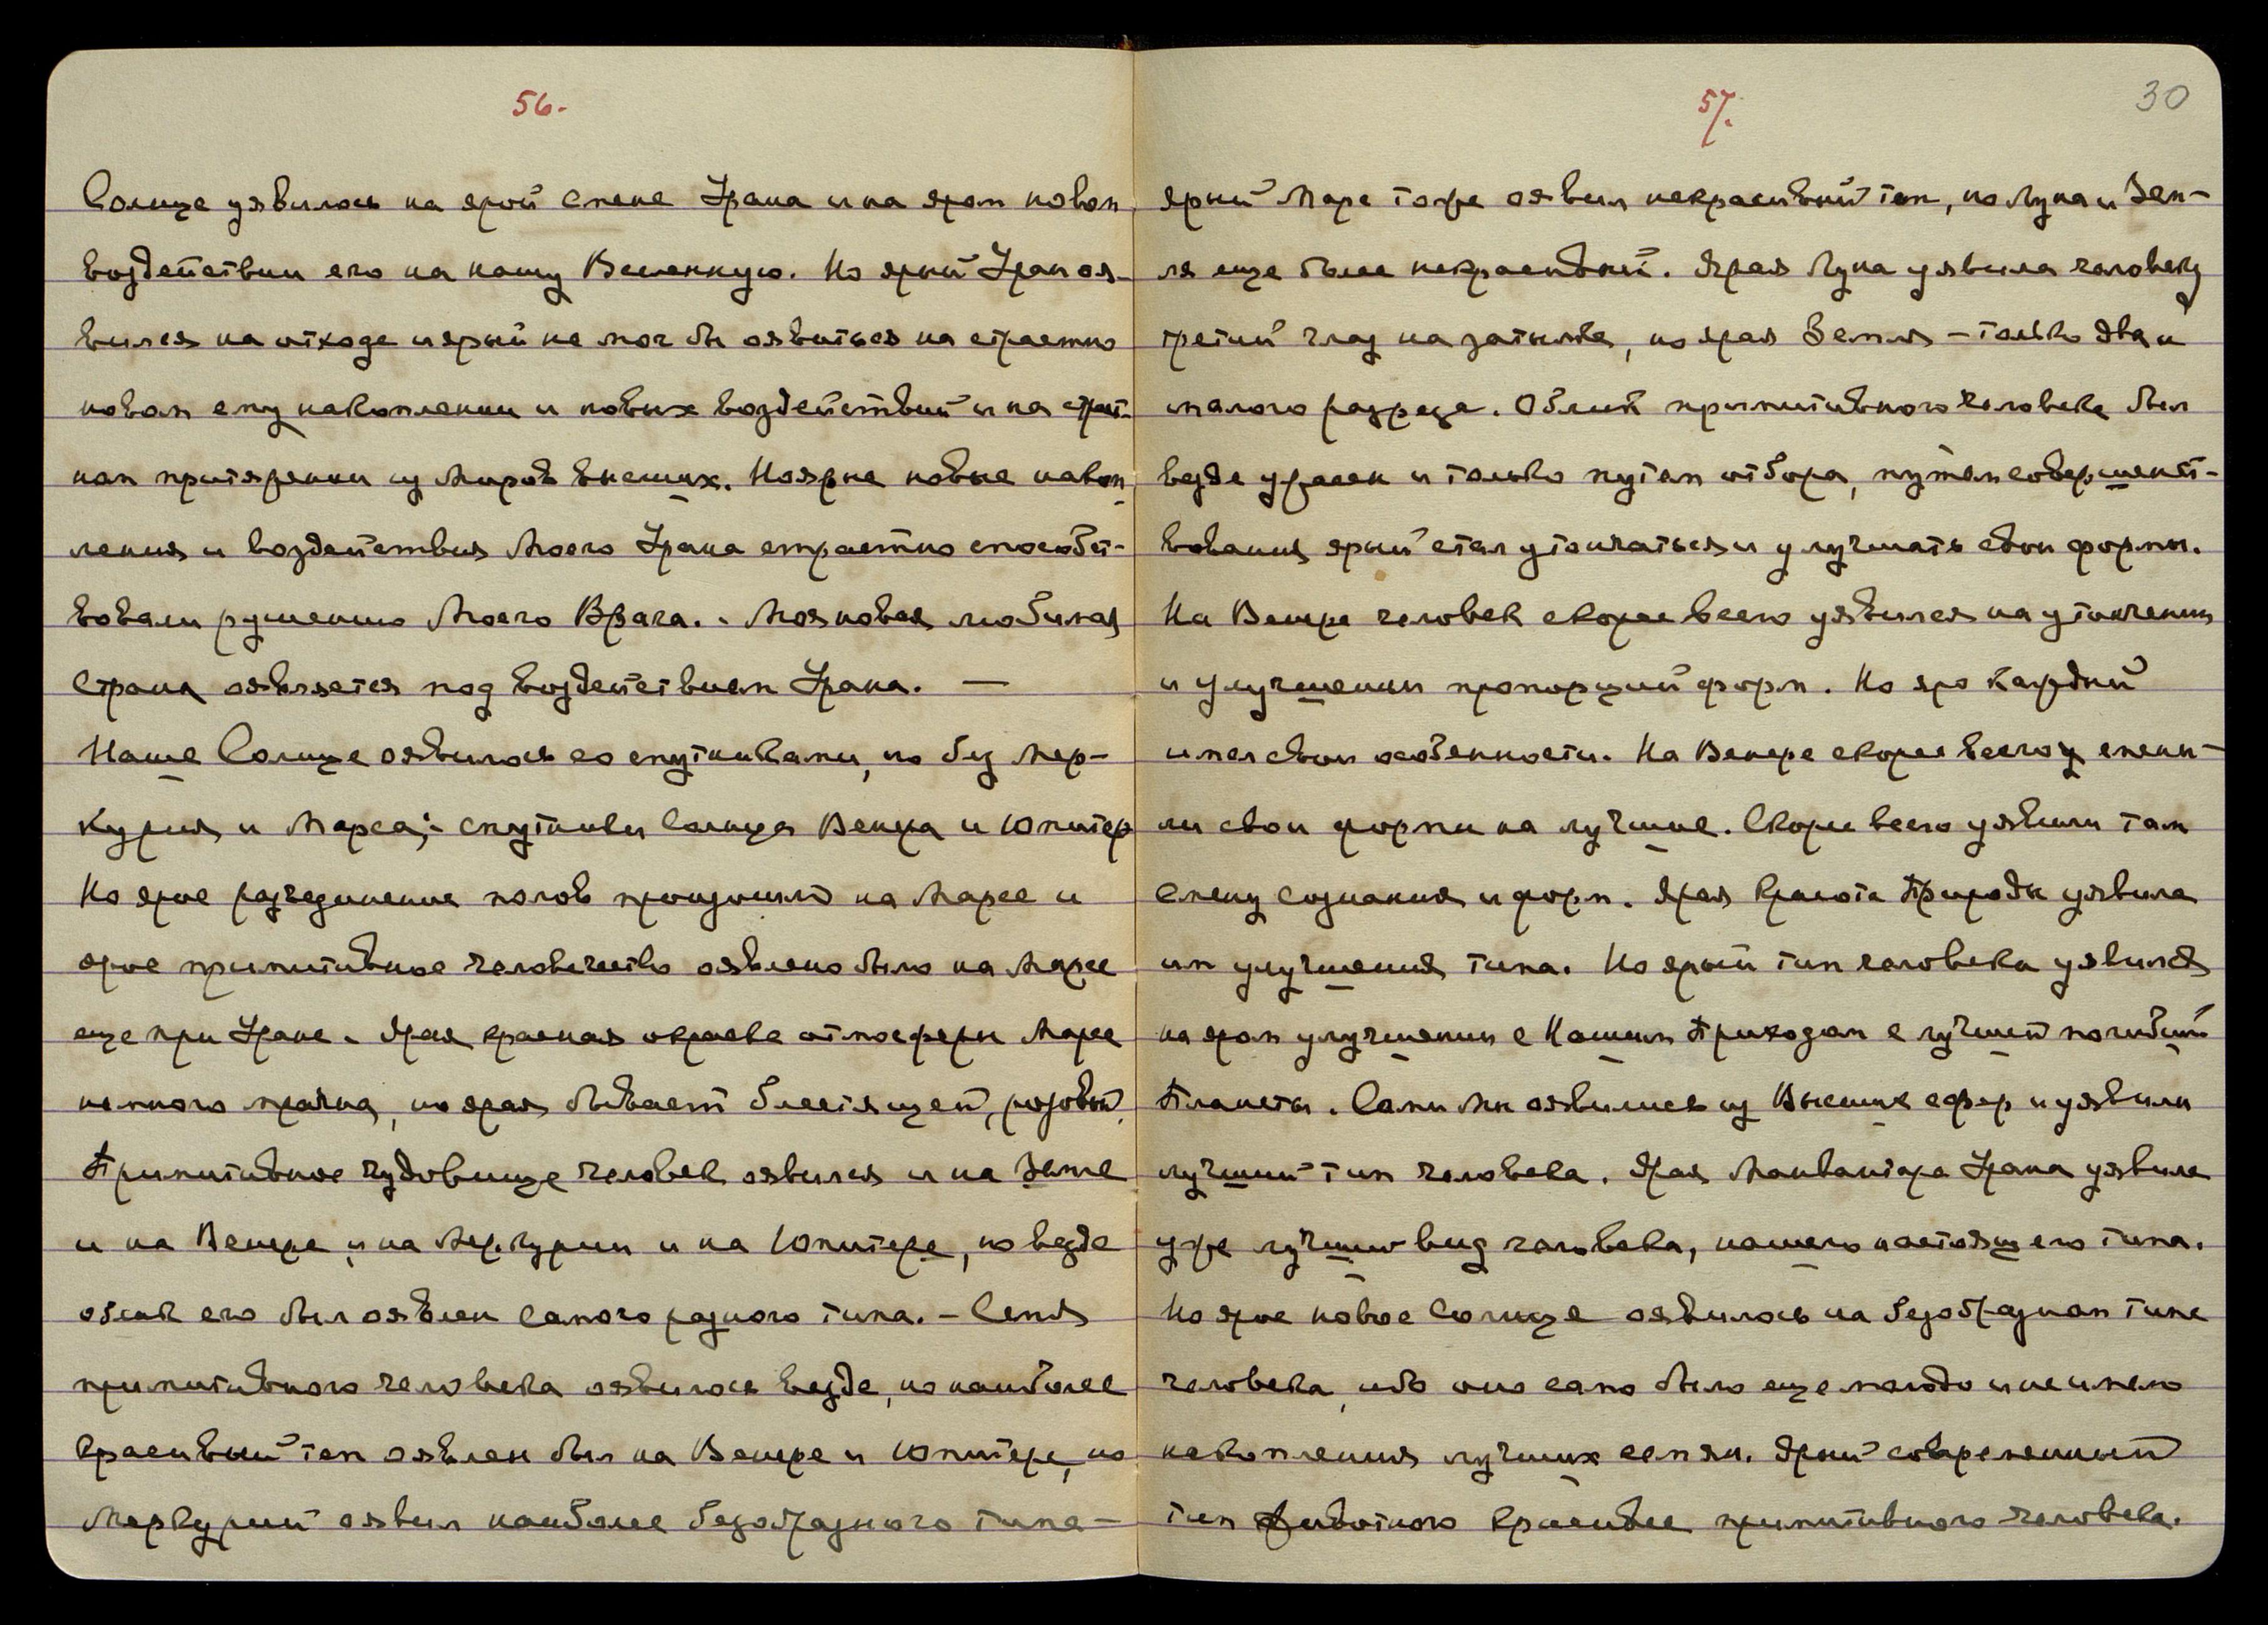 56.
Солнце уявилось на ярой смене Урана и на яром новом
воздействии его на нашу Вселенную. Но ярый Уран оя-
вился на отходе и ярый не мог бы оявиться на страстно
новом ему накоплении и новых воздействий и на
ном притяжении из Миров внешних. Но ярые новые накоп
ления и воздействия Моего Урана страстно способст-
вовали рушению Моего Врага. - Моя новая любимая
Страна оявляется под воздействием Урана. —
Наше Солнце оявилось со спутниками, но без Мер-
курия и Марса; - спутники Солнца Венера и Юпитер
Но ярое разъединение полов произошло на Марсе и
ярое примитивное человечество оявлено было на Марсе
еще при Уране. Ярая красная окраска атмосферы Марса
немного мрачна, но ярая бывает блестящей, розовой.
Примитивное чудовище человек оявился и на Земле
и на Венере, и на Меркурии и на Юпитере, но везде
облик его был оявлен самого разного типа. - Семя
примитивного человека оявилось везде, но наиболее
красивый тип оявлен был на Венере и Юпитере, но
Меркурий оявил наиболее безобразного типа -
57.
30
ярый Марс тоже оявил некрасивый тип, но Луна и Зем-
ля еще более некрасивый. Ярая Луна уявила человеку
третий глаз на затылке, но ярая Земля - только два и
малого разреза. Облик примитивного человека был
везде ужасен и только путем отбора, путем совершенст-
вования ярый стал утончаться и улучшать свои формы.
На Венере человек скорее всего уявился на утончении
и улучшении пропорций форм. Но яро каждый
имел свои особенности. На Венере скорее всего смени-
ли свои формы на лучшие. Скорее всего уявили там
смену сознания и форм. Ярая Красота Природы уявила
им улучшения типа. Но ярый тип человека уявился
на яром улучшении с Нашим Приходом с лучшей погибшей
Планеты. Сами Мы оявились из Высших сфер и уявили
лучший тип человека. Ярая Манвантара Урана уявила
уже лучший вид человека, нашего настоящего типа.
Но ярое новое Солнце оявилось на безобразном типе
человека, ибо оно само было еще молодо и не имело
накопления лучших семян. Ярый современный
тип животного красивее примитивного человека.